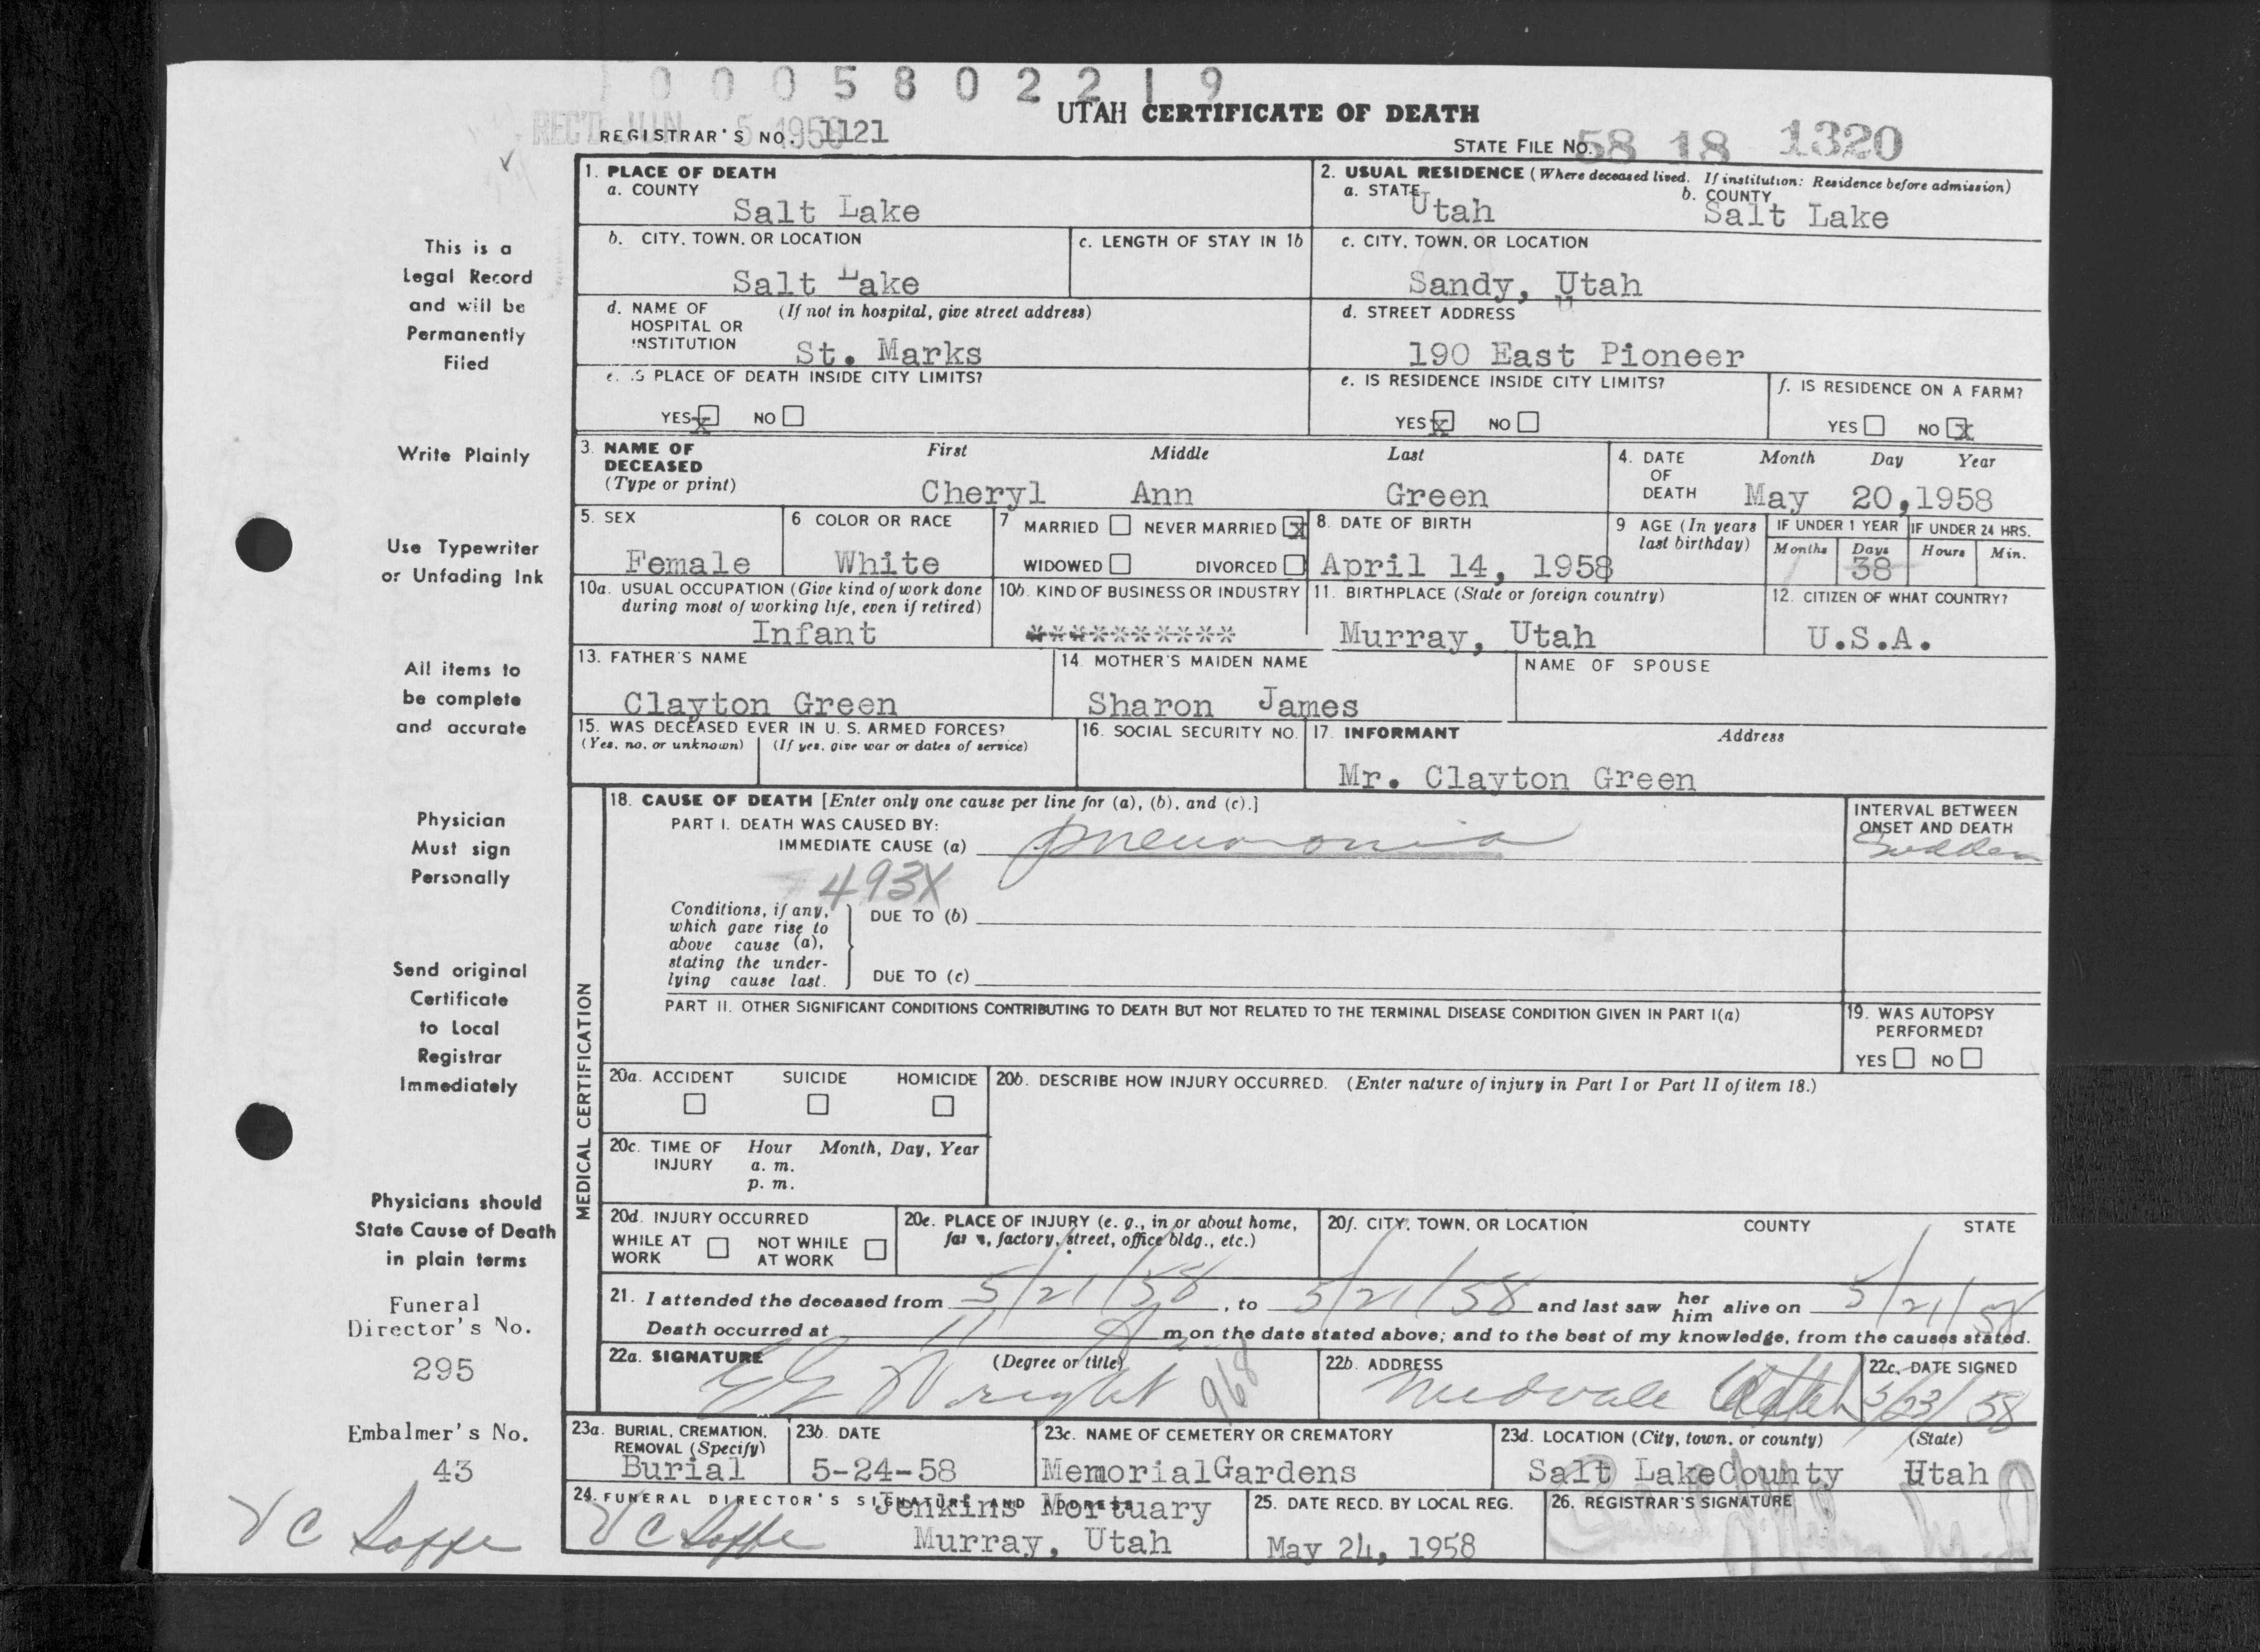 1 0 0 0 5 8 0 2 2 1 9
UTAH CERTIFICATE OF DEATH
REC'D JUN 5 1958
REGISTRAR'S NO. 1121
STATE FILE NO. 58 18 1320
1. PLACE OF DEATH
a. COUNTY
Salt Lake
2. USUAL RESIDENCE (Where deceased lived. If institution: Residence before admission)
a. STATE Utah
b. COUNTY Salt Lake
b. CITY, TOWN, OR LOCATION
Salt Lake
c. LENGTH OF STAY IN 1b
c. CITY, TOWN, OR LOCATION
Sandy, Utah
d. NAME OF HOSPITAL OR INSTITUTION (If not in hospital, give street address)
St. Marks
d. STREET ADDRESS
190 East Pioneer
e. IS PLACE OF DEATH INSIDE CITY LIMITS?
YES x NO
e. IS RESIDENCE INSIDE CITY LIMITS?
YES x NO
f. IS RESIDENCE ON A FARM?
YES NO x
3. NAME OF DECEASED (Type or print)
First Middle Last
Cheryl Ann Green
4. DATE OF DEATH Month Day Year
May 20, 1958
5. SEX
Female
6 COLOR OR RACE
White
7 MARRIED NEVER MARRIED x
WIDOWED DIVORCED
8. DATE OF BIRTH
April 14, 1958
9 AGE (In years last birthday)
IF UNDER 1 YEAR IF UNDER 24 HRS.
Months Days Hours Min.
1 38
10a. USUAL OCCUPATION (Give kind of work done during most of working life, even if retired)
Infant
10b. KIND OF BUSINESS OR INDUSTRY
**********
11. BIRTHPLACE (State or foreign country)
Murray, Utah
12. CITIZEN OF WHAT COUNTRY?
U.S.A.
13. FATHER'S NAME
Clayton Green
14. MOTHER'S MAIDEN NAME
Sharon James
NAME OF SPOUSE
15. WAS DECEASED EVER IN U. S. ARMED FORCES?
(Yes, no, or unknown) (If yes, give war or dates of service)
16. SOCIAL SECURITY NO.
17. INFORMANT Address
Mr. Clayton Green
18. CAUSE OF DEATH [Enter only one cause per line for (a), (b), and (c).]
PART I. DEATH WAS CAUSED BY:
IMMEDIATE CAUSE (a) Pneumonia
INTERVAL BETWEEN ONSET AND DEATH
Sudden
493X
Conditions, if any, which gave rise to above cause (a), stating the underlying cause last.
DUE TO (b)
DUE TO (c)
PART II. OTHER SIGNIFICANT CONDITIONS CONTRIBUTING TO DEATH BUT NOT RELATED TO THE TERMINAL DISEASE CONDITION GIVEN IN PART I(a)
19. WAS AUTOPSY PERFORMED?
YES NO
MEDICAL CERTIFICATION
20a. ACCIDENT SUICIDE HOMICIDE
20b. DESCRIBE HOW INJURY OCCURRED. (Enter nature of injury in Part I or Part II of item 18.)
20c. TIME OF INJURY Hour Month, Day, Year
a. m.
p. m.
20d. INJURY OCCURRED
WHILE AT WORK NOT WHILE AT WORK
20e. PLACE OF INJURY (e. g., in or about home, farm, factory, street, office bldg., etc.)
20f. CITY, TOWN, OR LOCATION COUNTY STATE
21. I attended the deceased from 5/21/58, to 5/21/58 and last saw her him alive on 5/21/58
Death occurred at 11 A m., on the date stated above; and to the best of my knowledge, from the causes stated.
22a. SIGNATURE (Degree or title)
Wright 968
22b. ADDRESS
Midvale Utah
22c. DATE SIGNED
5/23/58
23a. BURIAL, CREMATION, REMOVAL (Specify)
Burial
23b. DATE
5-24-58
23c. NAME OF CEMETERY OR CREMATORY
MemorialGardens
23d. LOCATION (City, town, or county) (State)
Salt LakeCounty Utah
24. FUNERAL DIRECTOR'S SIGNATURE AND ADDRESS
Jenkins Mortuary
Murray, Utah
25. DATE RECD. BY LOCAL REG.
May 24, 1958
26. REGISTRAR'S SIGNATURE
This is a
Legal Record
and will be
Permanently
Filed
Write Plainly
Use Typewriter
or Unfading Ink
All items to
be complete
and accurate
Physician
Must sign
Personally
Send original
Certificate
to Local
Registrar
Immediately
Physicians should
State Cause of Death
in plain terms
Funeral
Director's No.
295
Embalmer's No.
43